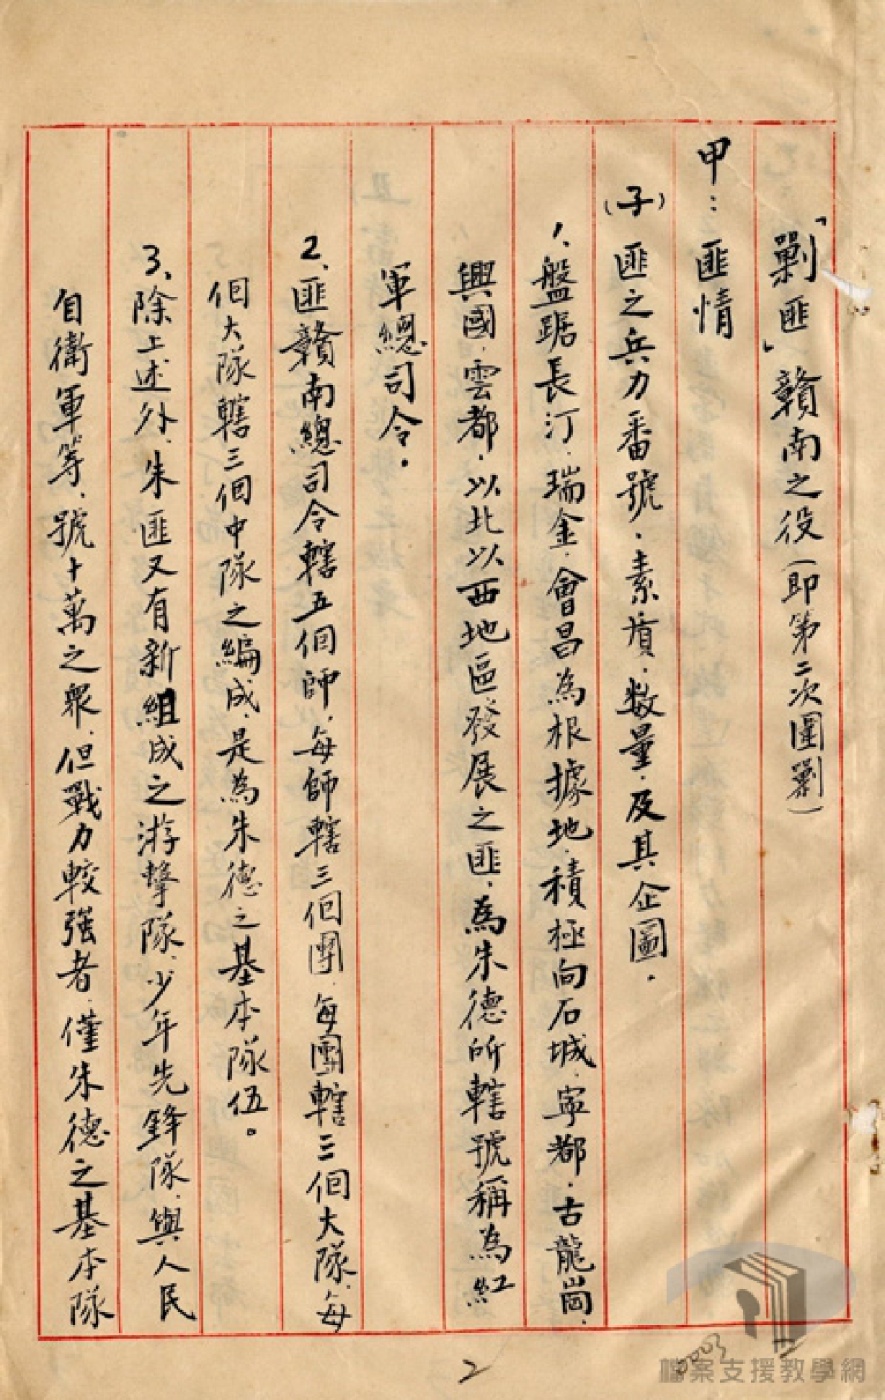 「剿匪」贛南之役(即第二次圍剿)
甲：匪情
(子)匪之兵力番號、素質、数量、及其企圖。
1、盤踞長汀、瑞金、會昌為根據地、積極向石城、寧都、古龍崗、
興國、雲都、以北以西地區發展之匪、為朱德所轄號稱為紅
軍總司令。
2、匪贛南總司令轄五個師、每師轄三個團、每團轄三個大隊、每
個大隊轄三個中隊之編成、是為朱德之基本隊伍。
3、除上述外、朱匪又有新組成之游擊隊、少年先鋒隊、與人民
自衛軍等、號十萬之衆、但戰力較強者、僅朱德之基本隊
2
0003
檔案支援教學網